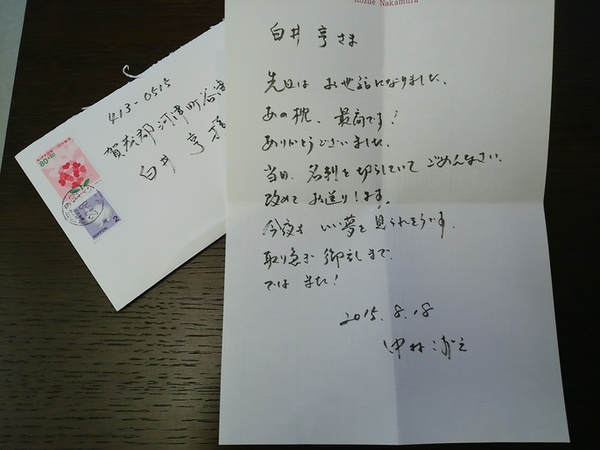 Kozue Nakamura
白井 亨さま
先日は お世話になりました。
あの枕、最高です!
ありがとうございました。
当日、名刺を切らしていて ごめんなさい。
改めて お送りします。
今夜も いい夢を 見られそうです。
取り急ぎ 御礼まで。
では また!
2015.8.18
413-0515
賀茂郡 河津町 谷津
白井 亨 様
80
NIPPON 2